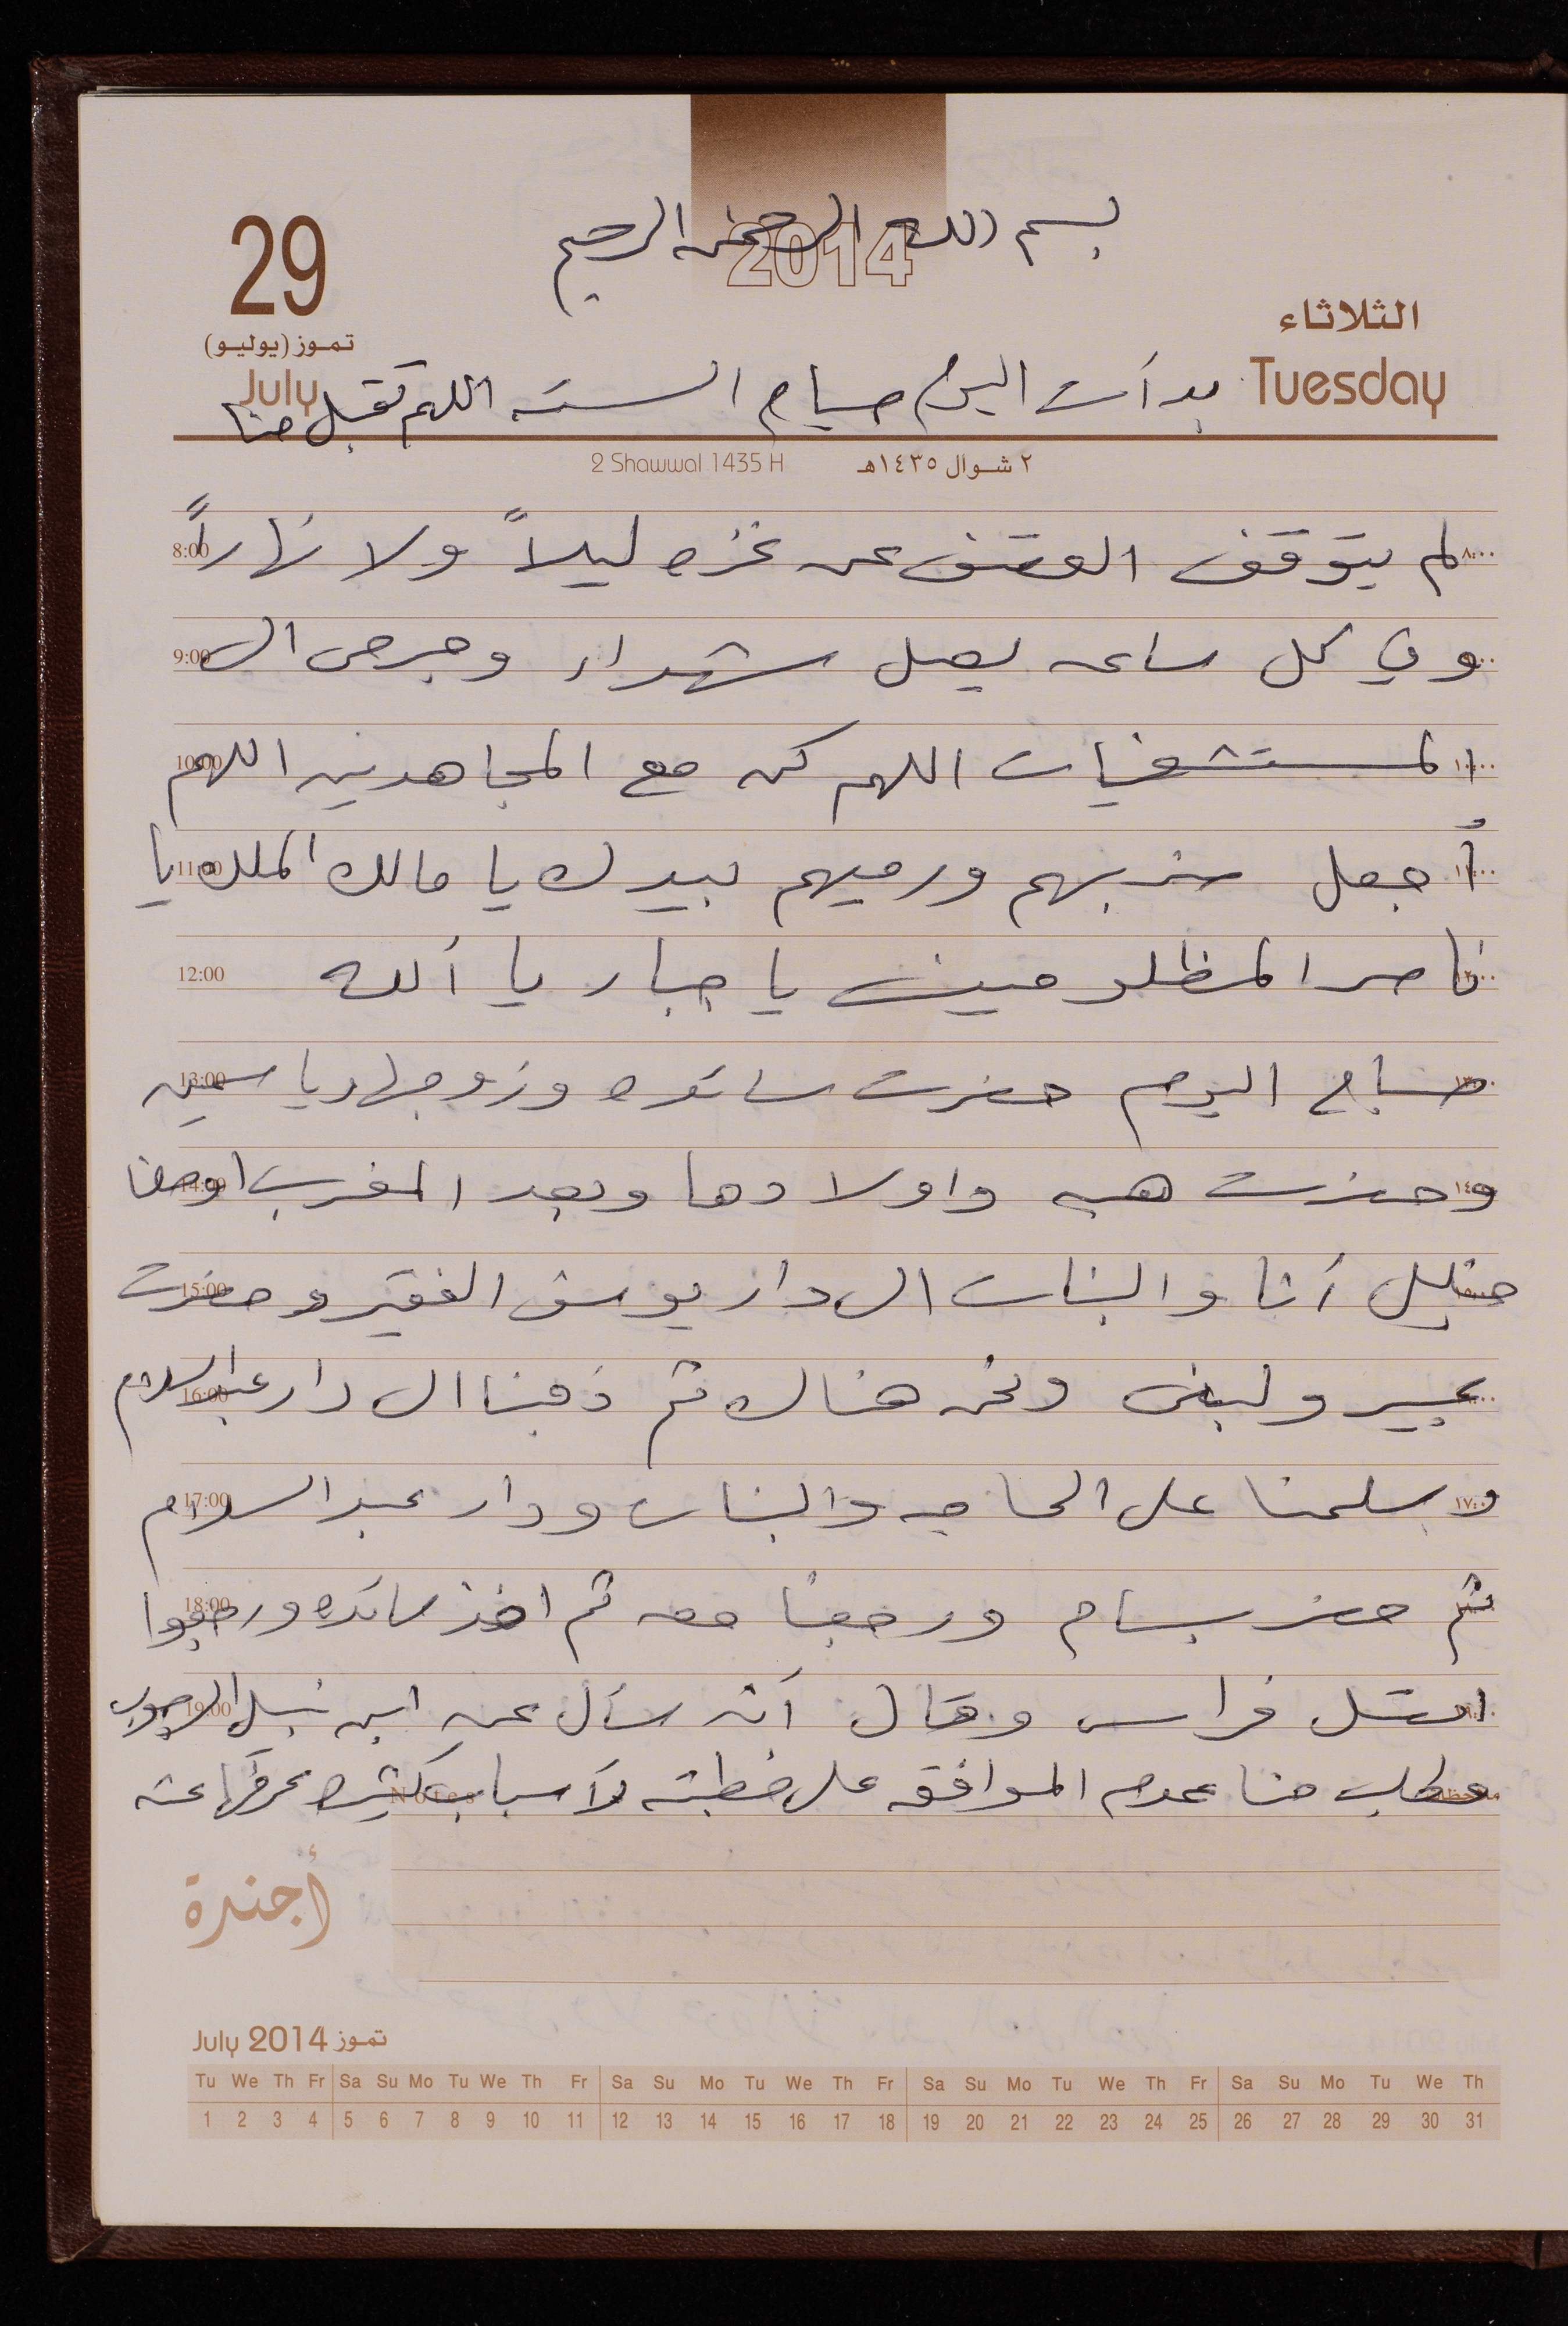 بسم الله الرحمن الرحيم
2014
29
تموز (يوليو)
July
الثلاثاء
Tuesday
بدأت اليوم صيام السته اللهم تقبل منا
2 Shawwal 1435 H ٢ شوال ١٤٣٥هـ
8:00 لم يتوقف القصف عن غزه ليلاً ولا نهاراً
9:00 وفي كل ساعه يصل شهداء وجرحى الى
10:00 المستشفيات اللهم كن مع المجاهدين اللهم
11:00 أجعل ضربهم ورميهم بيدك يا مالك الملك يا
12:00 ناصر المظلومين يا جبار يا ألله
13:00 صباح اليوم حضرت سائده وزوجها وياسمين
14:00 وحضرت هبه واولادها وبعد المغرب اوصلنا
15:00 أنا والبنات الى دار يوسف الفقير وحضرت
16:00 عبير ولبنى ونحن هناك ثم ذهبنا الى دار عبد السلام
17:00 وسلمنا على الحاجه والبنات ودار عبد السلام
18:00 ثم حضر بسام ورجعنا معه ثم اخذ سائده ورجعوا
19:00 اتصل فراس وقال أنه سأل عن ابن نبيل
وطلب منا عدم الموافقه على خطبته لأسباب كثيره عرفها عنه
Notes
أجندة
July 2014 تموز
Tu We Th Fr Sa Su Mo Tu We Th Fr Sa Su Mo Tu We Th Fr Sa Su Mo Tu We Th Fr Sa Su Mo Tu We Th
1 2 3 4 5 6 7 8 9 10 11 12 13 14 15 16 17 18 19 20 21 22 23 24 25 26 27 28 29 30 31